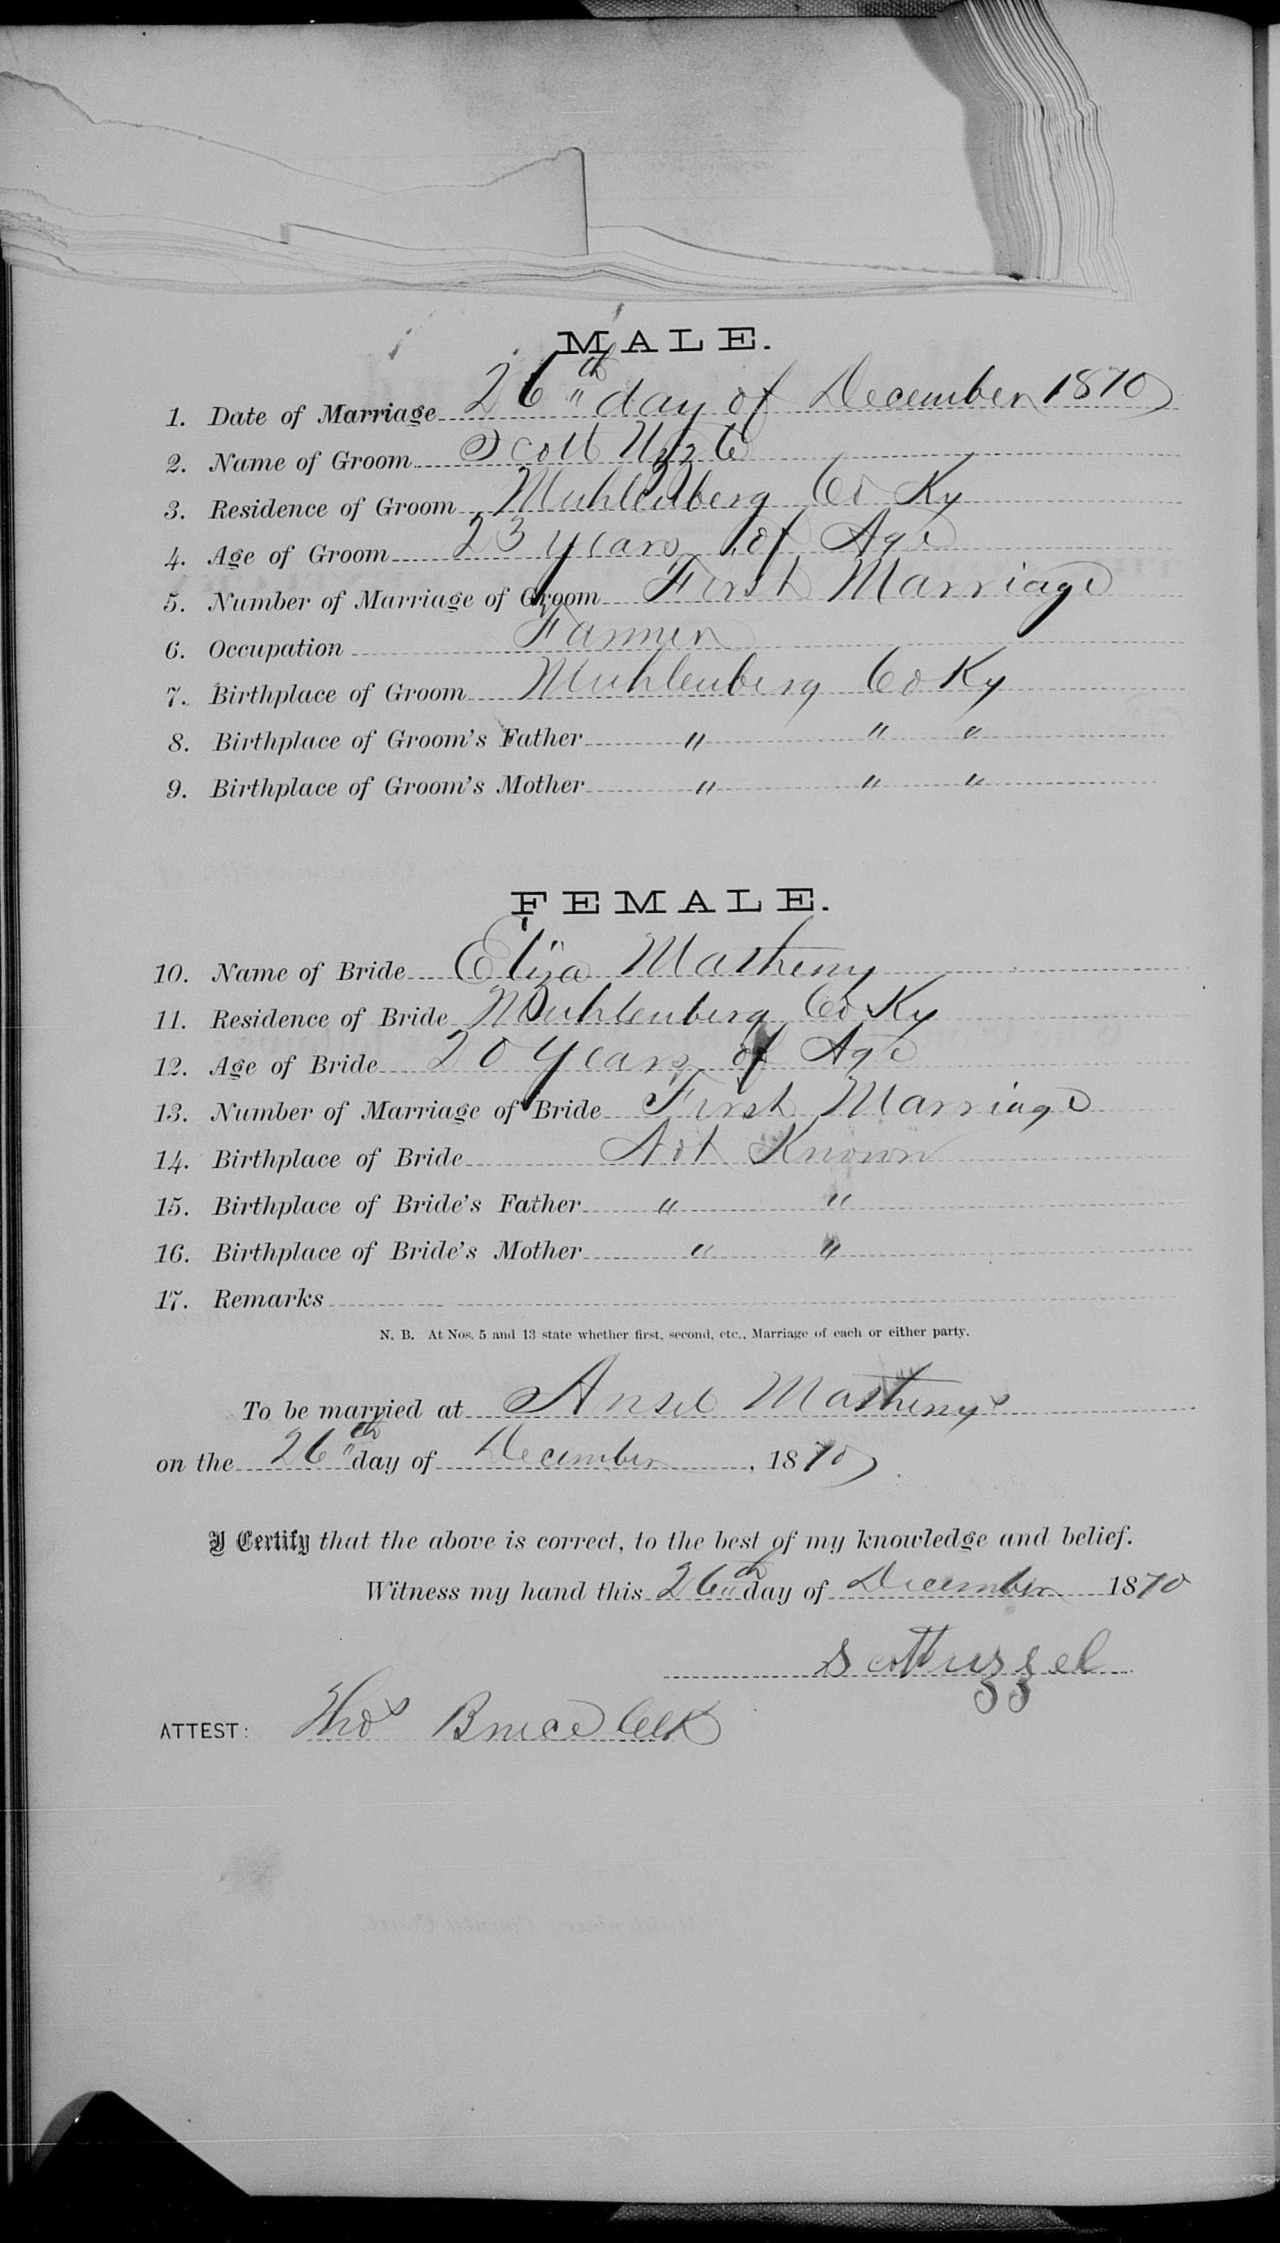 MALE.
1. Date of Marriage 26th day of December 1870
2. Name of Groom Scott
3. Residence of Groom Muhlenberg Co Ky
4. Age of Groom 23 years of Age
5. Number of Marriage of Groom First Marriage
6. Occupation Farmer
7. Birthplace of Groom Muhlenberg Co Ky
8. Birthplace of Groom's Father " " "
9. Birthplace of Groom's Mother " " "
FEMALE.
10. Name of Bride Eliza Matheny
11. Residence of Bride Muhlenberg Co Ky
12. Age of Bride 20 years of Age
13. Number of Marriage of Bride First Marriage
14. Birthplace of Bride Not Known
15. Birthplace of Bride's Father " "
16. Birthplace of Bride's Mother " "
17. Remarks
N. B. At Nos. 5 and 13 state whether first, second, etc., Marriage of each or either party.
To be married at Ansel Mathenys
on the 26th day of December, 1870
I Certify that the above is correct, to the best of my knowledge and belief.
Witness my hand this 26th day of December 1870
Scott uzzel
ATTEST: Thos Bruce Clk